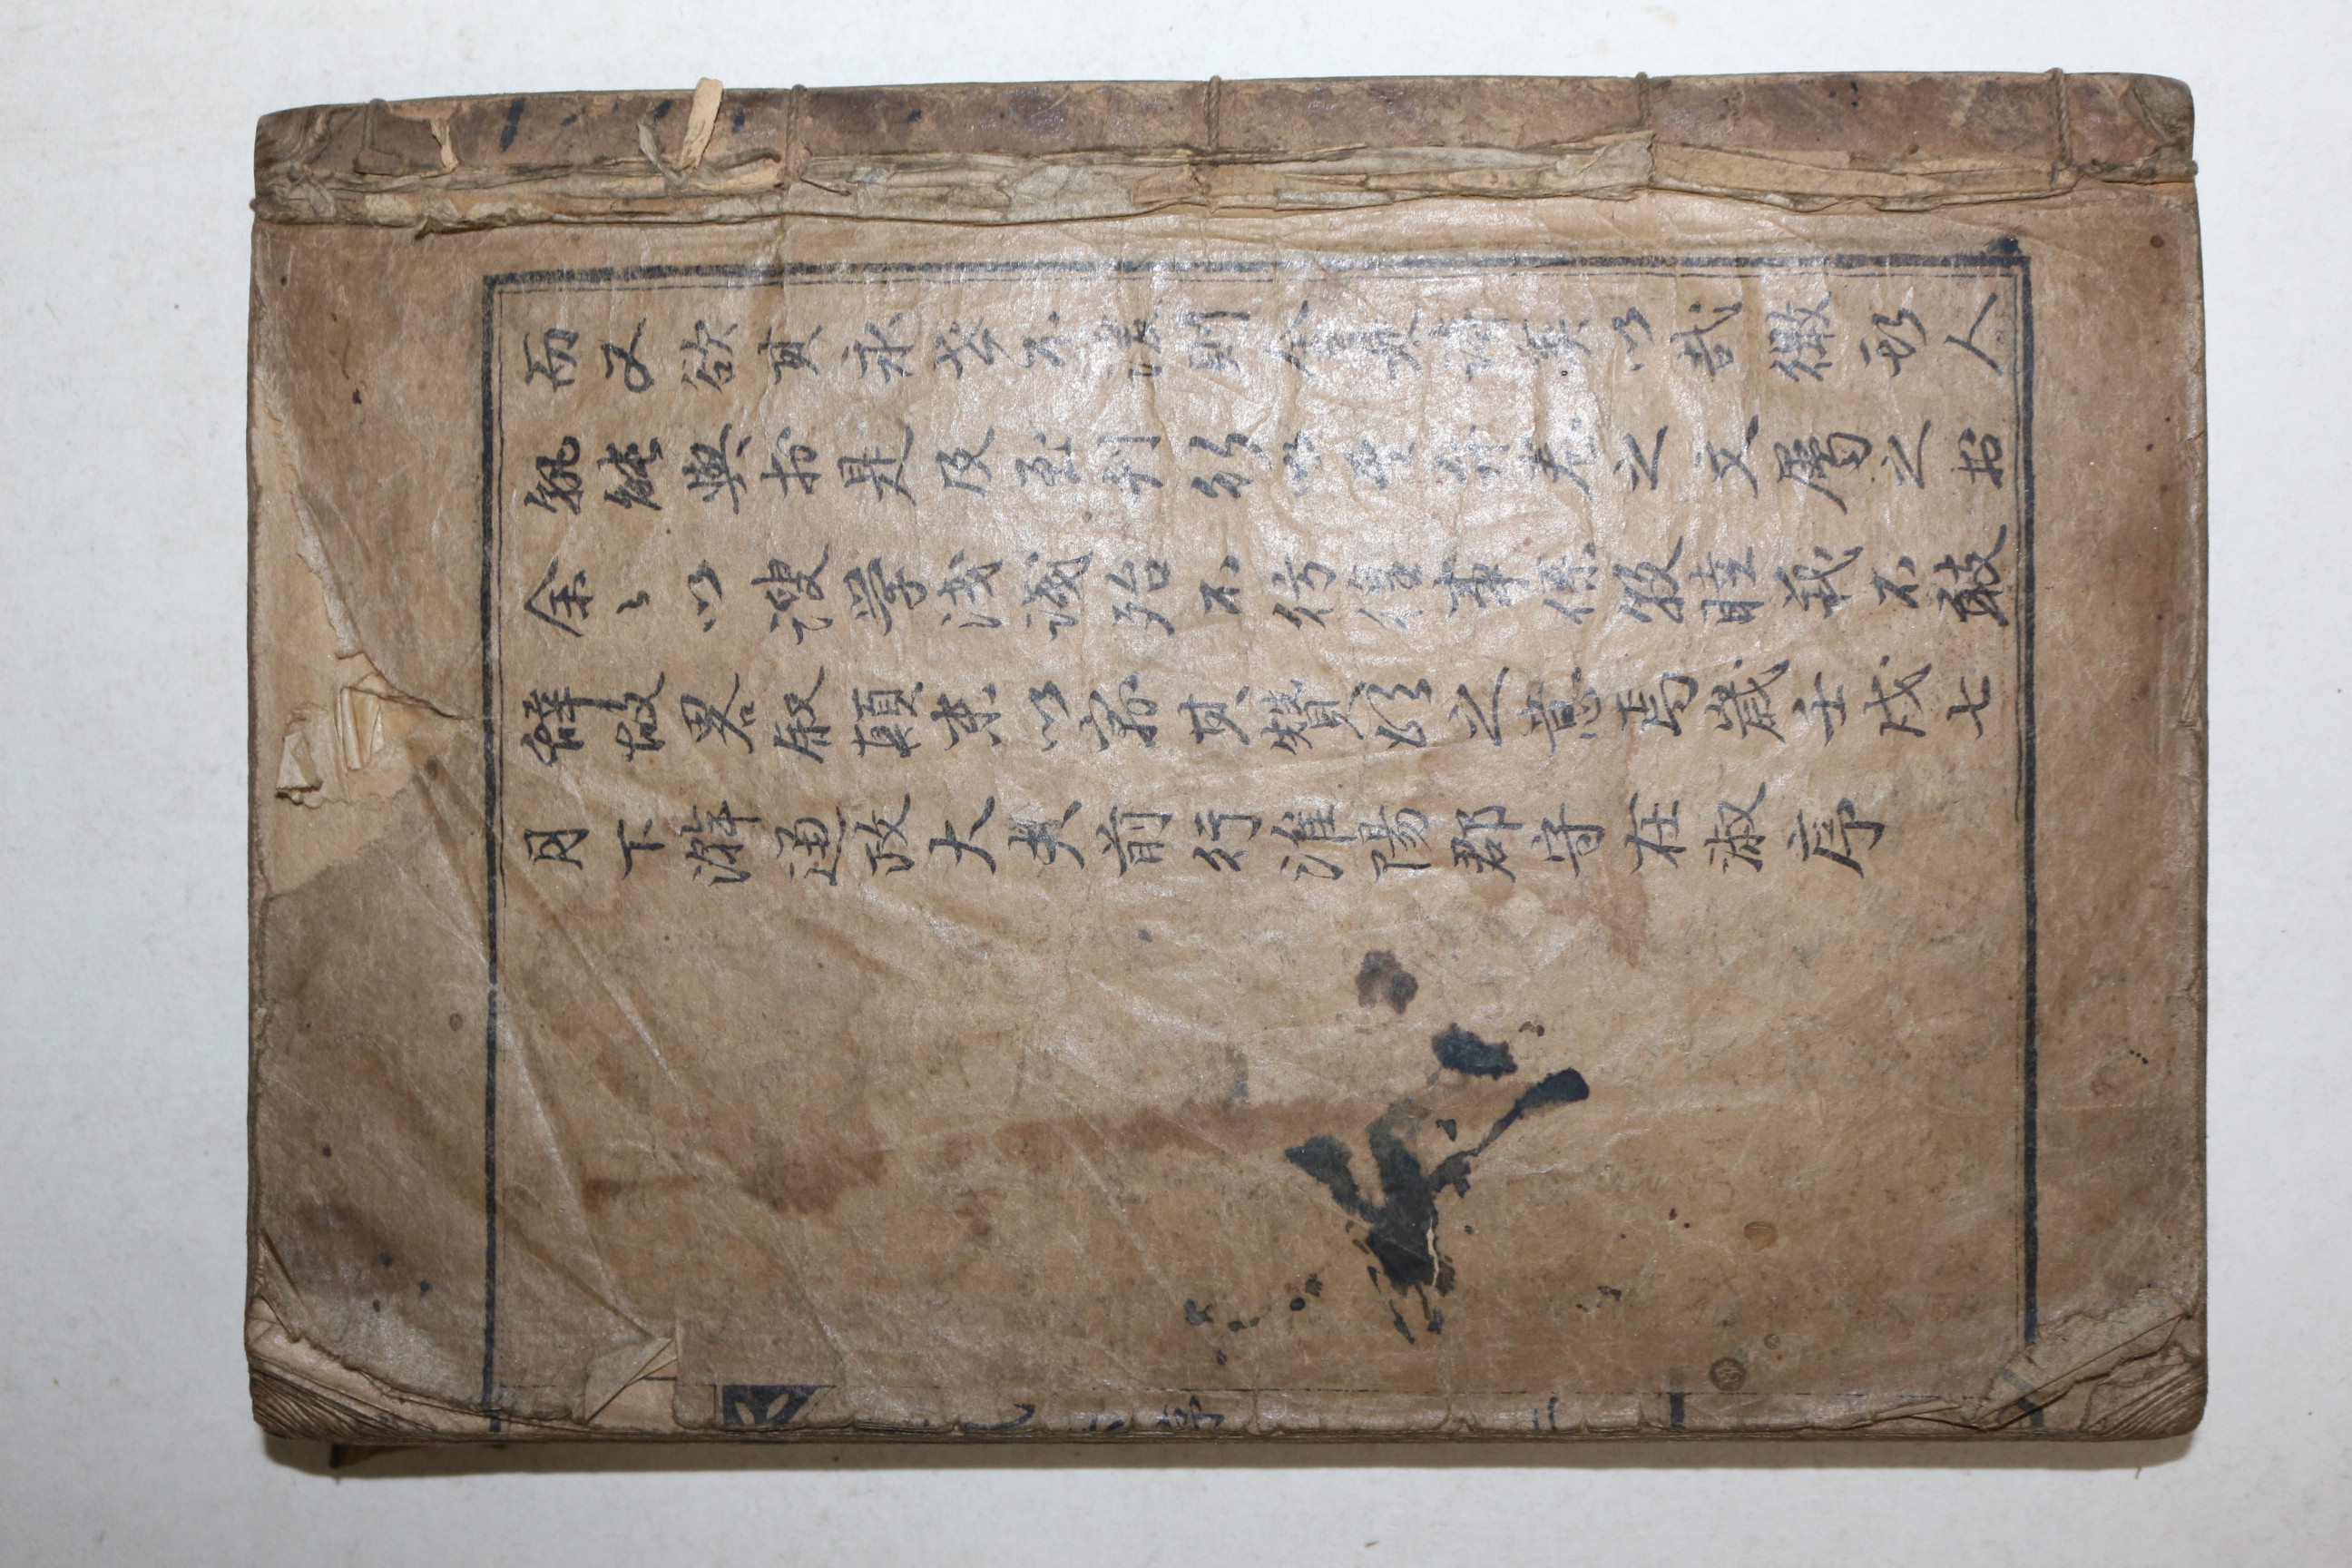 而又欲其永世不諼則會是譜奚以哉徵斯人
孰能與於是及至刊役以其弁卷之文屬之於
余々以謏学淺識殆不彷徨事係敦睦義不敢
辭故畧叙顛末以寓其贊頌之意焉歲壬戌七
月下澣通政大夫前行淮陽郡守在淑序
序
二